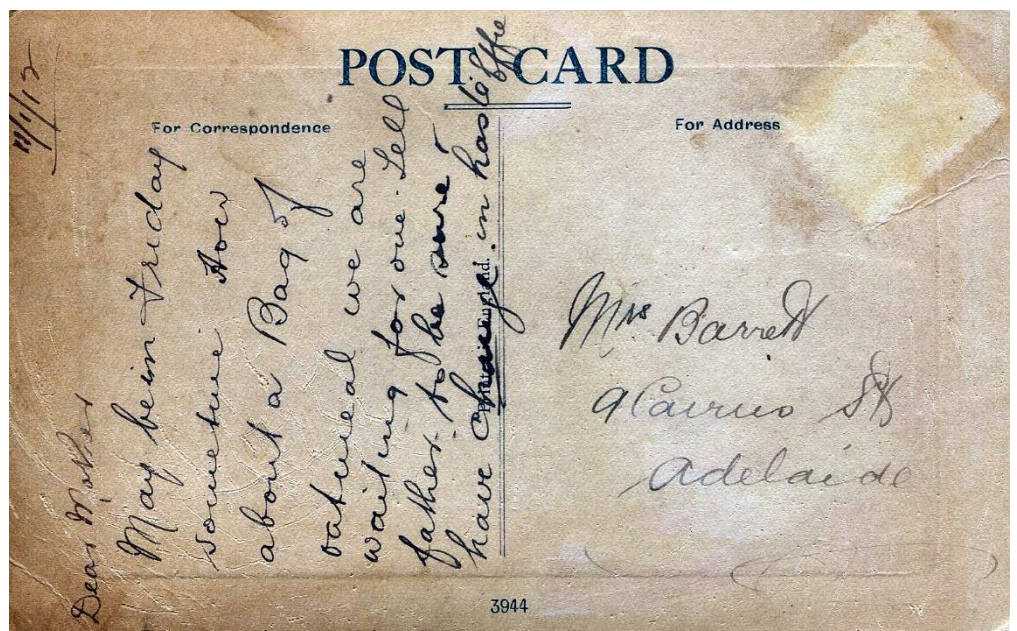 POST CARD
For Correspondence
For Address
Dear Mother
May be in Friday
sometime How
about a Bag of
oatmeal we are
waiting for one. Tell
father to be sure &
have change in haste
Effie
Mrs Barrett
9 Cairns St
Adelaide
England.
3944